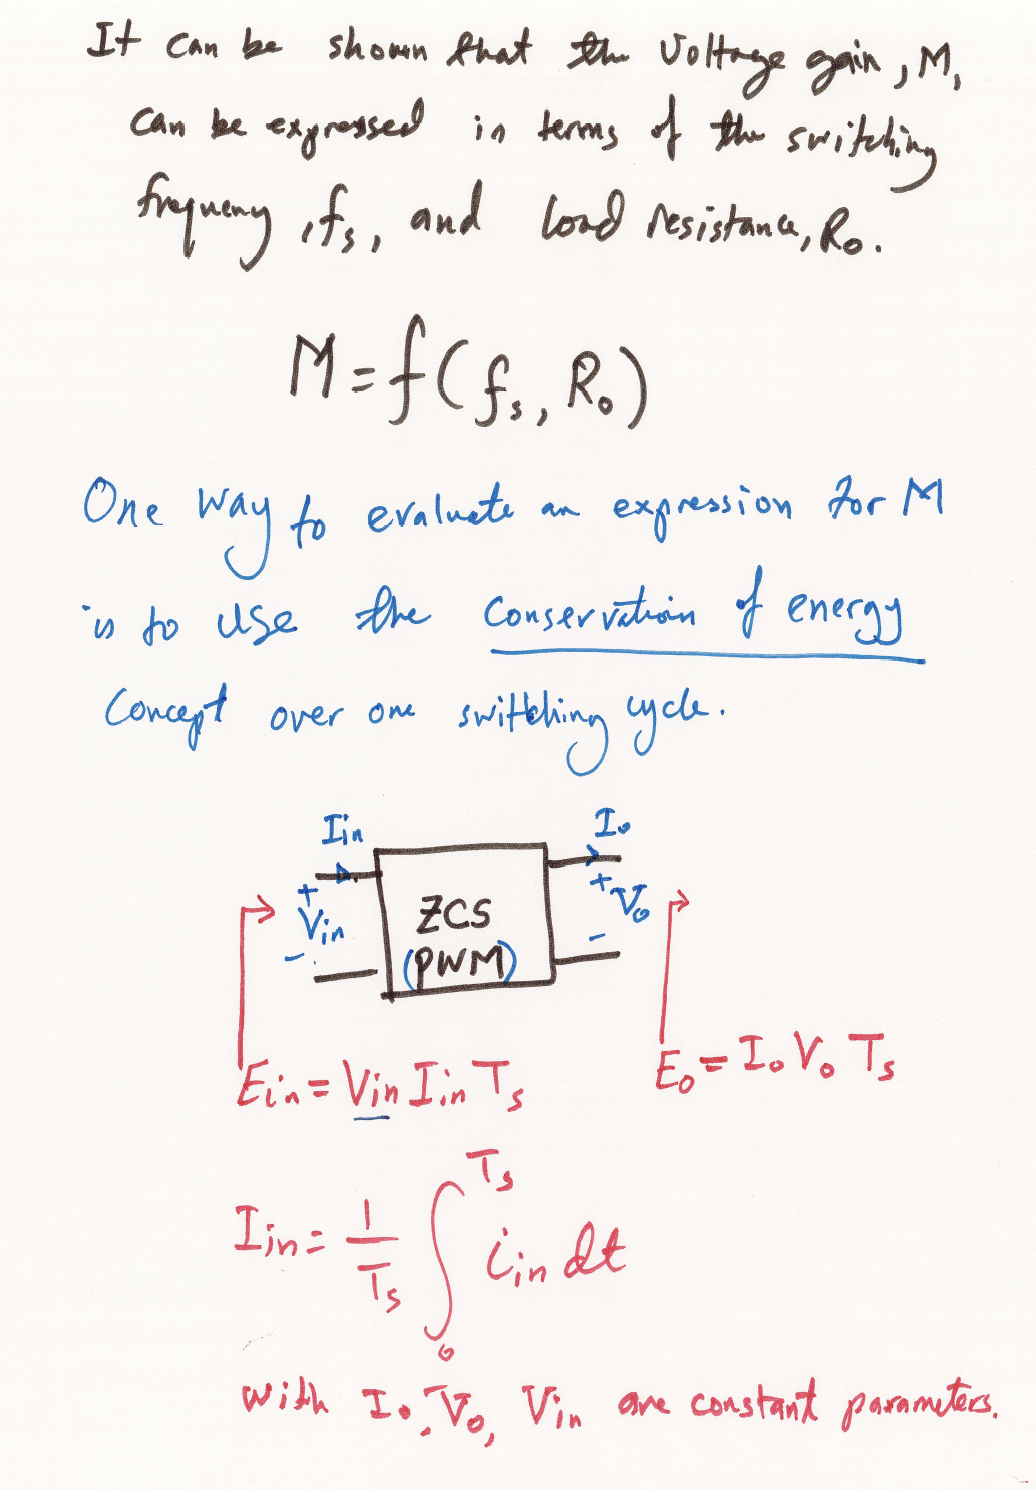 It can be shown that the voltage gain, M,
can be expressed in terms of the switching
frequency, fs, and load resistance, Ro.
M = f(fs, Ro)
One way to evaluate an expression for M
is to use the conservation of energy
concept over one switching cycle.
Iin
Io
+
Vin
-
ZCS
(PWM)
+
Vo
-
Ein = Vin Iin Ts
Eo = Io Vo Ts
Iin = 1/Ts ∫0^Ts iin dt
with Io, Vo, Vin are constant parameters.